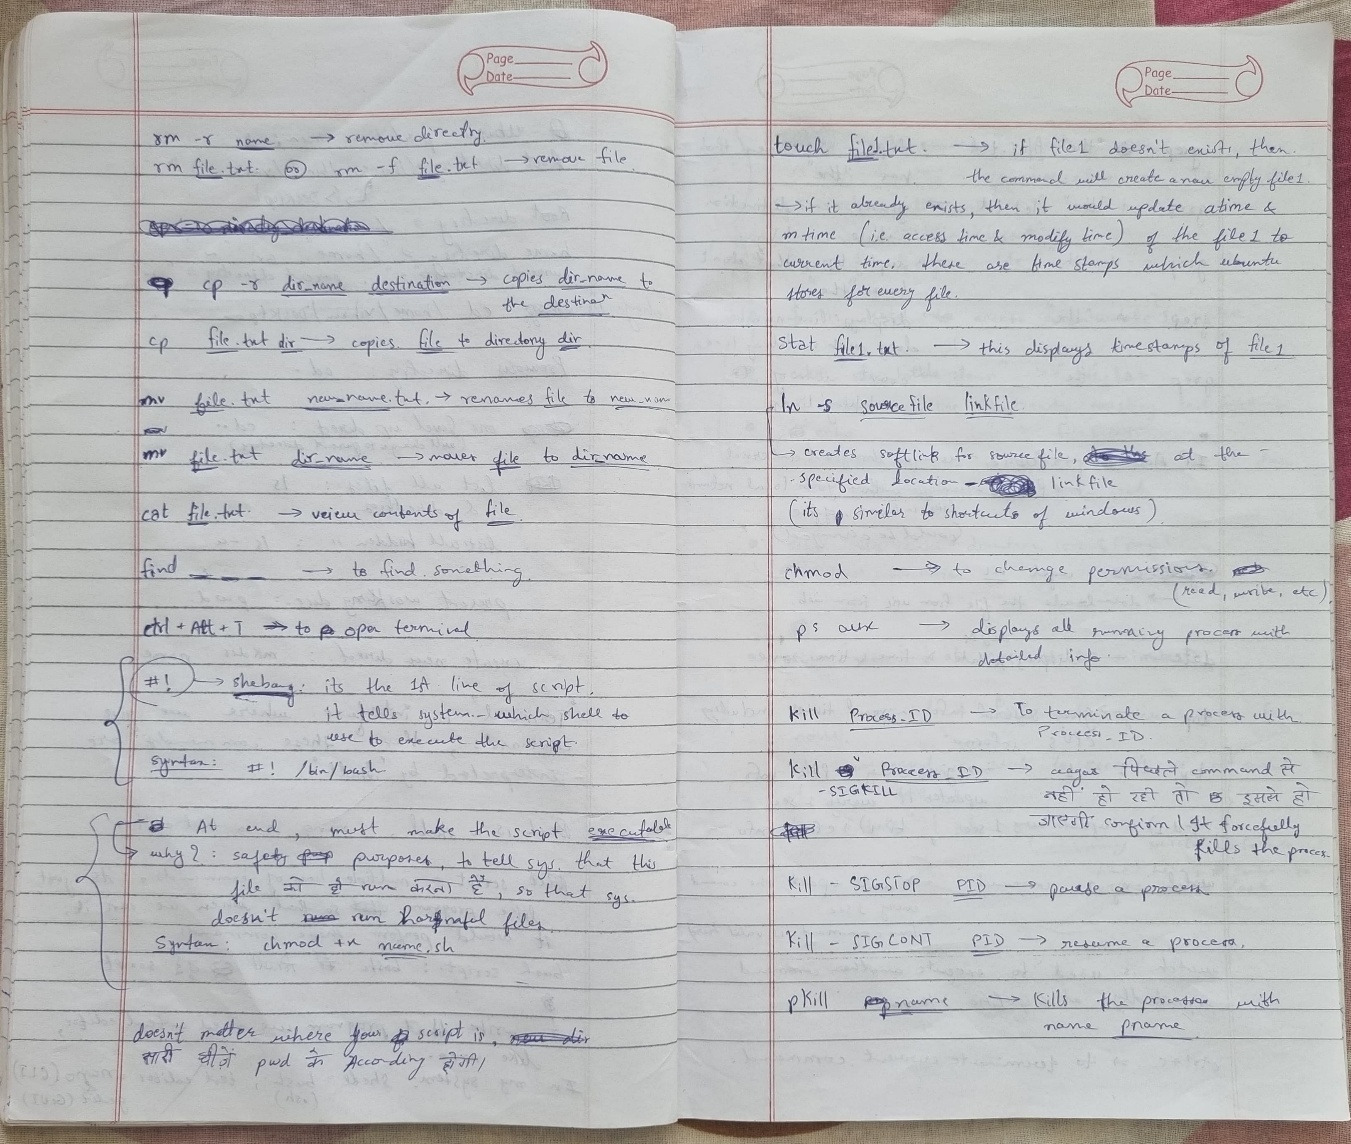 Page
Date
rm -r name → remove directry.
rm file.txt. or rm -f file.txt → remove file
cp -r dir_name destination → copies dir_name to
the destinan
cp file.txt dir → copies file to directory dir.
mv file.txt new_name.txt. → renames file to new_nam
mv file.txt dir_name → moves file to dir_name
cat file.txt → veiew contents of file
find _ _ _ → to find something.
ctrl + Alt + T → to open terminal
#! → shebang: its the 1st line of script.
it tells system which shell to
use to execute the script
Syntax: #! /bin/bash
At end, must make the script executable
why? : safety purposes, to tell sys. that this
file को ही run करना है, so that sys.
doesn't run harmful files.
Syntax: chmod +x name.sh
doesn't matter where your script is,
सारी चीज़ें pwd के According होगी।
Page
Date
touch file1.txt. → if file1 doesn't exists, then
the command will create a new empty file1.
→ if it already exists, then it would update atime &
mtime (i.e. access time & modify time) of the file1 to
current time, these are time stamps which ubuntu
stores for every file.
Stat file1.txt. → this displays timestamps of file1
ln -s sourcefile linkfile
→ creates softlink for sourcefile, at the
specified location - linkfile
(its similar to shortcuts of windows)
chmod → to change permissions.
(read, write, etc)
ps aux → displays all running process with
detailed info.
Kill Process_ID → To terminate a process with
Process_ID.
Kill Process_ID → aagar पिछले command से
-SIGKILL नहीं हो रही तो इससे हो
जाएगी confirm | It forcefully
kills the process.
Kill -SIGSTOP PID → pause a process
Kill -SIGCONT PID → resume a process.
pkill name → Kills the processes with
name pname